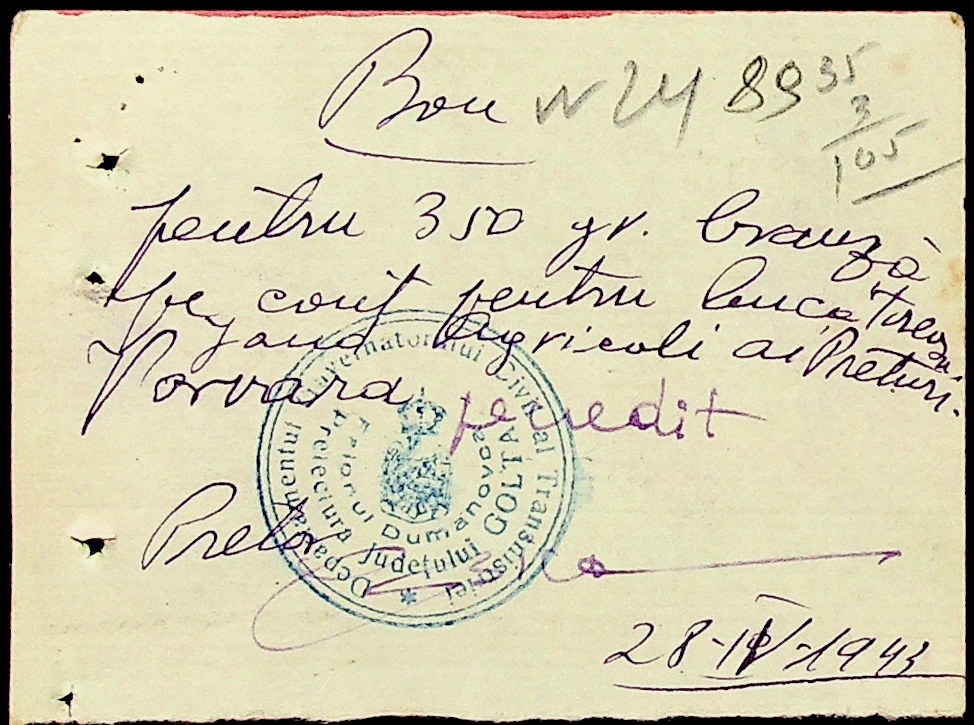 Bon N 24 89 35
3
105
pentru 350 gr. branză
pe conț pentru Luca
Agricoli al Preturi.
Porvara, pe credit
Guvernatorului Civil al Transnistriei * Departamentul
Prefectura Județului GOLTA
Dumanovca
Pretor
28-IV-1943